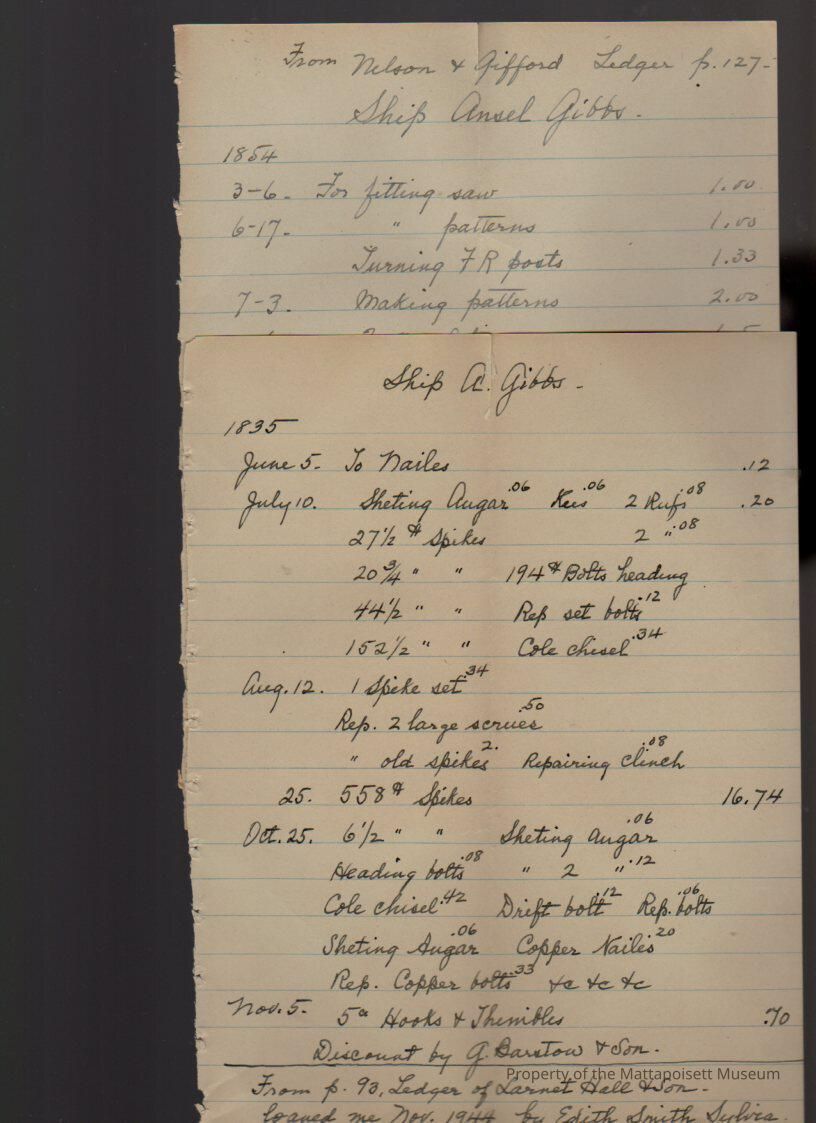 From Nelson & Gifford Ledger p. 127-
Ship Ansel Gibbs.
1854
3-6. For fitting saw 1.00
6-17- " patterns 1.00
Turning F R posts 1.33
7-3. Making patterns 2.00
Ship A. Gibbs -
1835
June 5- To Nailes .12
July 10. Sheting Augar .06 .06 2 .08 .20
27 1/2 # Spikes 2 " .08
20 3/4 " " 194 # Bolts heading
44 1/2 " " Rep set bolts .12
152 1/2 " " Cole chisel .34
Aug. 12. 1 Spike set .34
Rep. 2 large scrues .50
" old spikes 2. Repairing clinch .08
25. 558 # Spikes 16.74
Oct. 25. 6 1/2 " " Sheting Augar .06
Heading bolts .08 " 2 " .12
Cole chisel .42 Drift bolt .12 Rep. bolts .06
Sheting Augar .06 Copper Nailes .20
Rep. Copper bolts .33 &c &c &c
Nov. 5. Hooks & Thimbles .70
Discount by G. Barstow & Son.
Property of the Mattapoisett Museum
From p. 93, Ledger of Larnet Hall & Son -
loaned me Nov. 1944 by Edith Smith Sylvia.